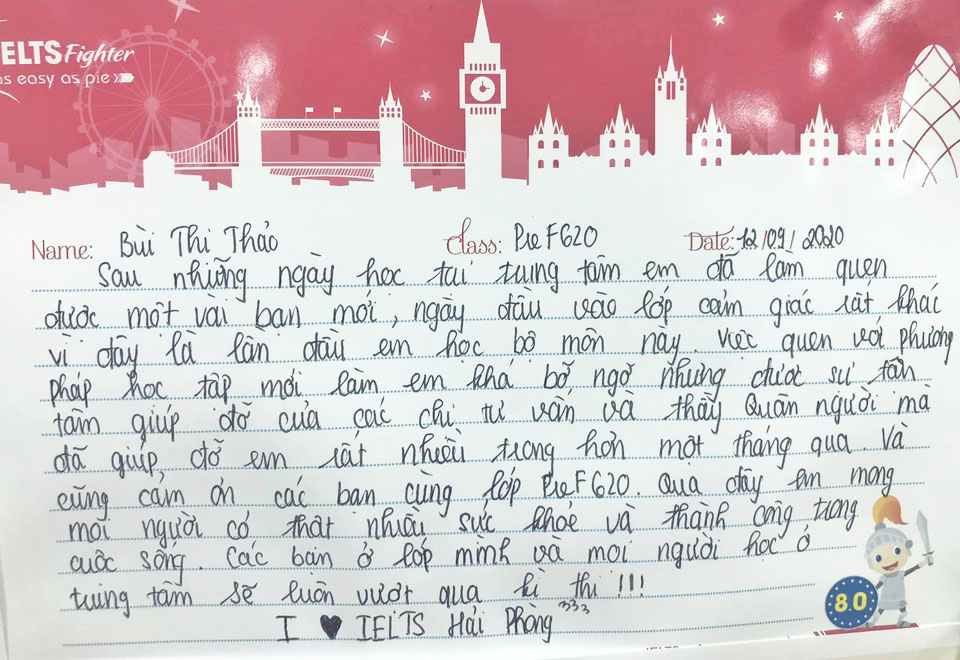 IELTS Fighter
as easy as pie
Name: Bùi Thị Thảo Class: PreF620 Date: 12/09/2020
Sau những ngày học tại trung tâm em đã làm quen
được một vài bạn mới, ngày đầu vào lớp cảm giác rất khác
vì đây là lần đầu em học bộ môn này. Việc quen với phương
pháp học tập mới làm em khá bỡ ngỡ nhưng được sự tận
tâm giúp đỡ của các chị tư vấn và thầy Quân người mà
đã giúp đỡ em rất nhiều trong hơn một tháng qua. Và
cũng cảm ơn các bạn cùng lớp PreF620. Qua đây em mong
mọi người có thật nhiều sức khỏe và thành công trong
cuộc sống. Các bạn ở lớp mình và mọi người học ở
trung tâm sẽ luôn vượt qua kì thi !!!
I ♥ IELTS Hải Phòng 333
8.0